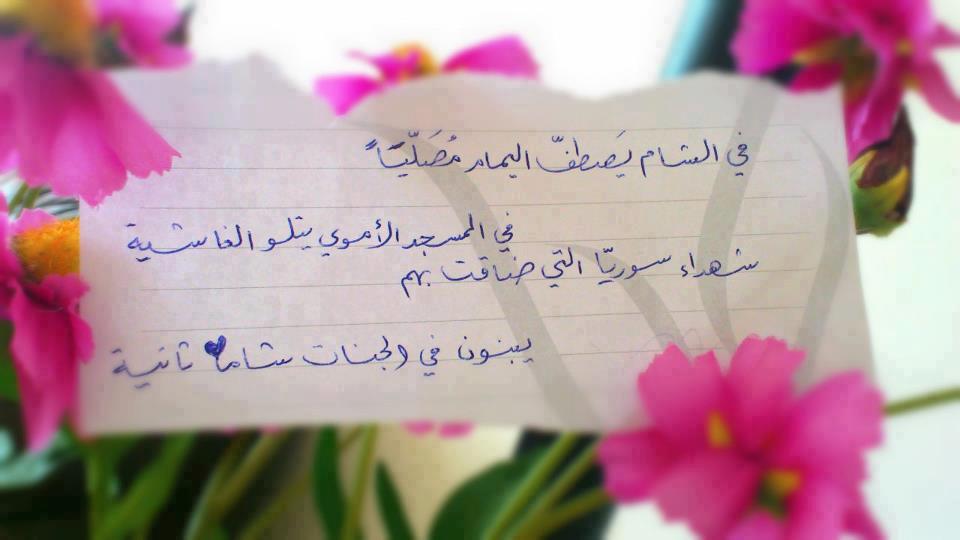 في الشام يَصطفّ اليمام مُصَلّيًاً
في المسجد الأموي يتلو الغاشية
شهداء سوريّا التي ضاقت بهم
يبنون في الجنات شاماً ثانية